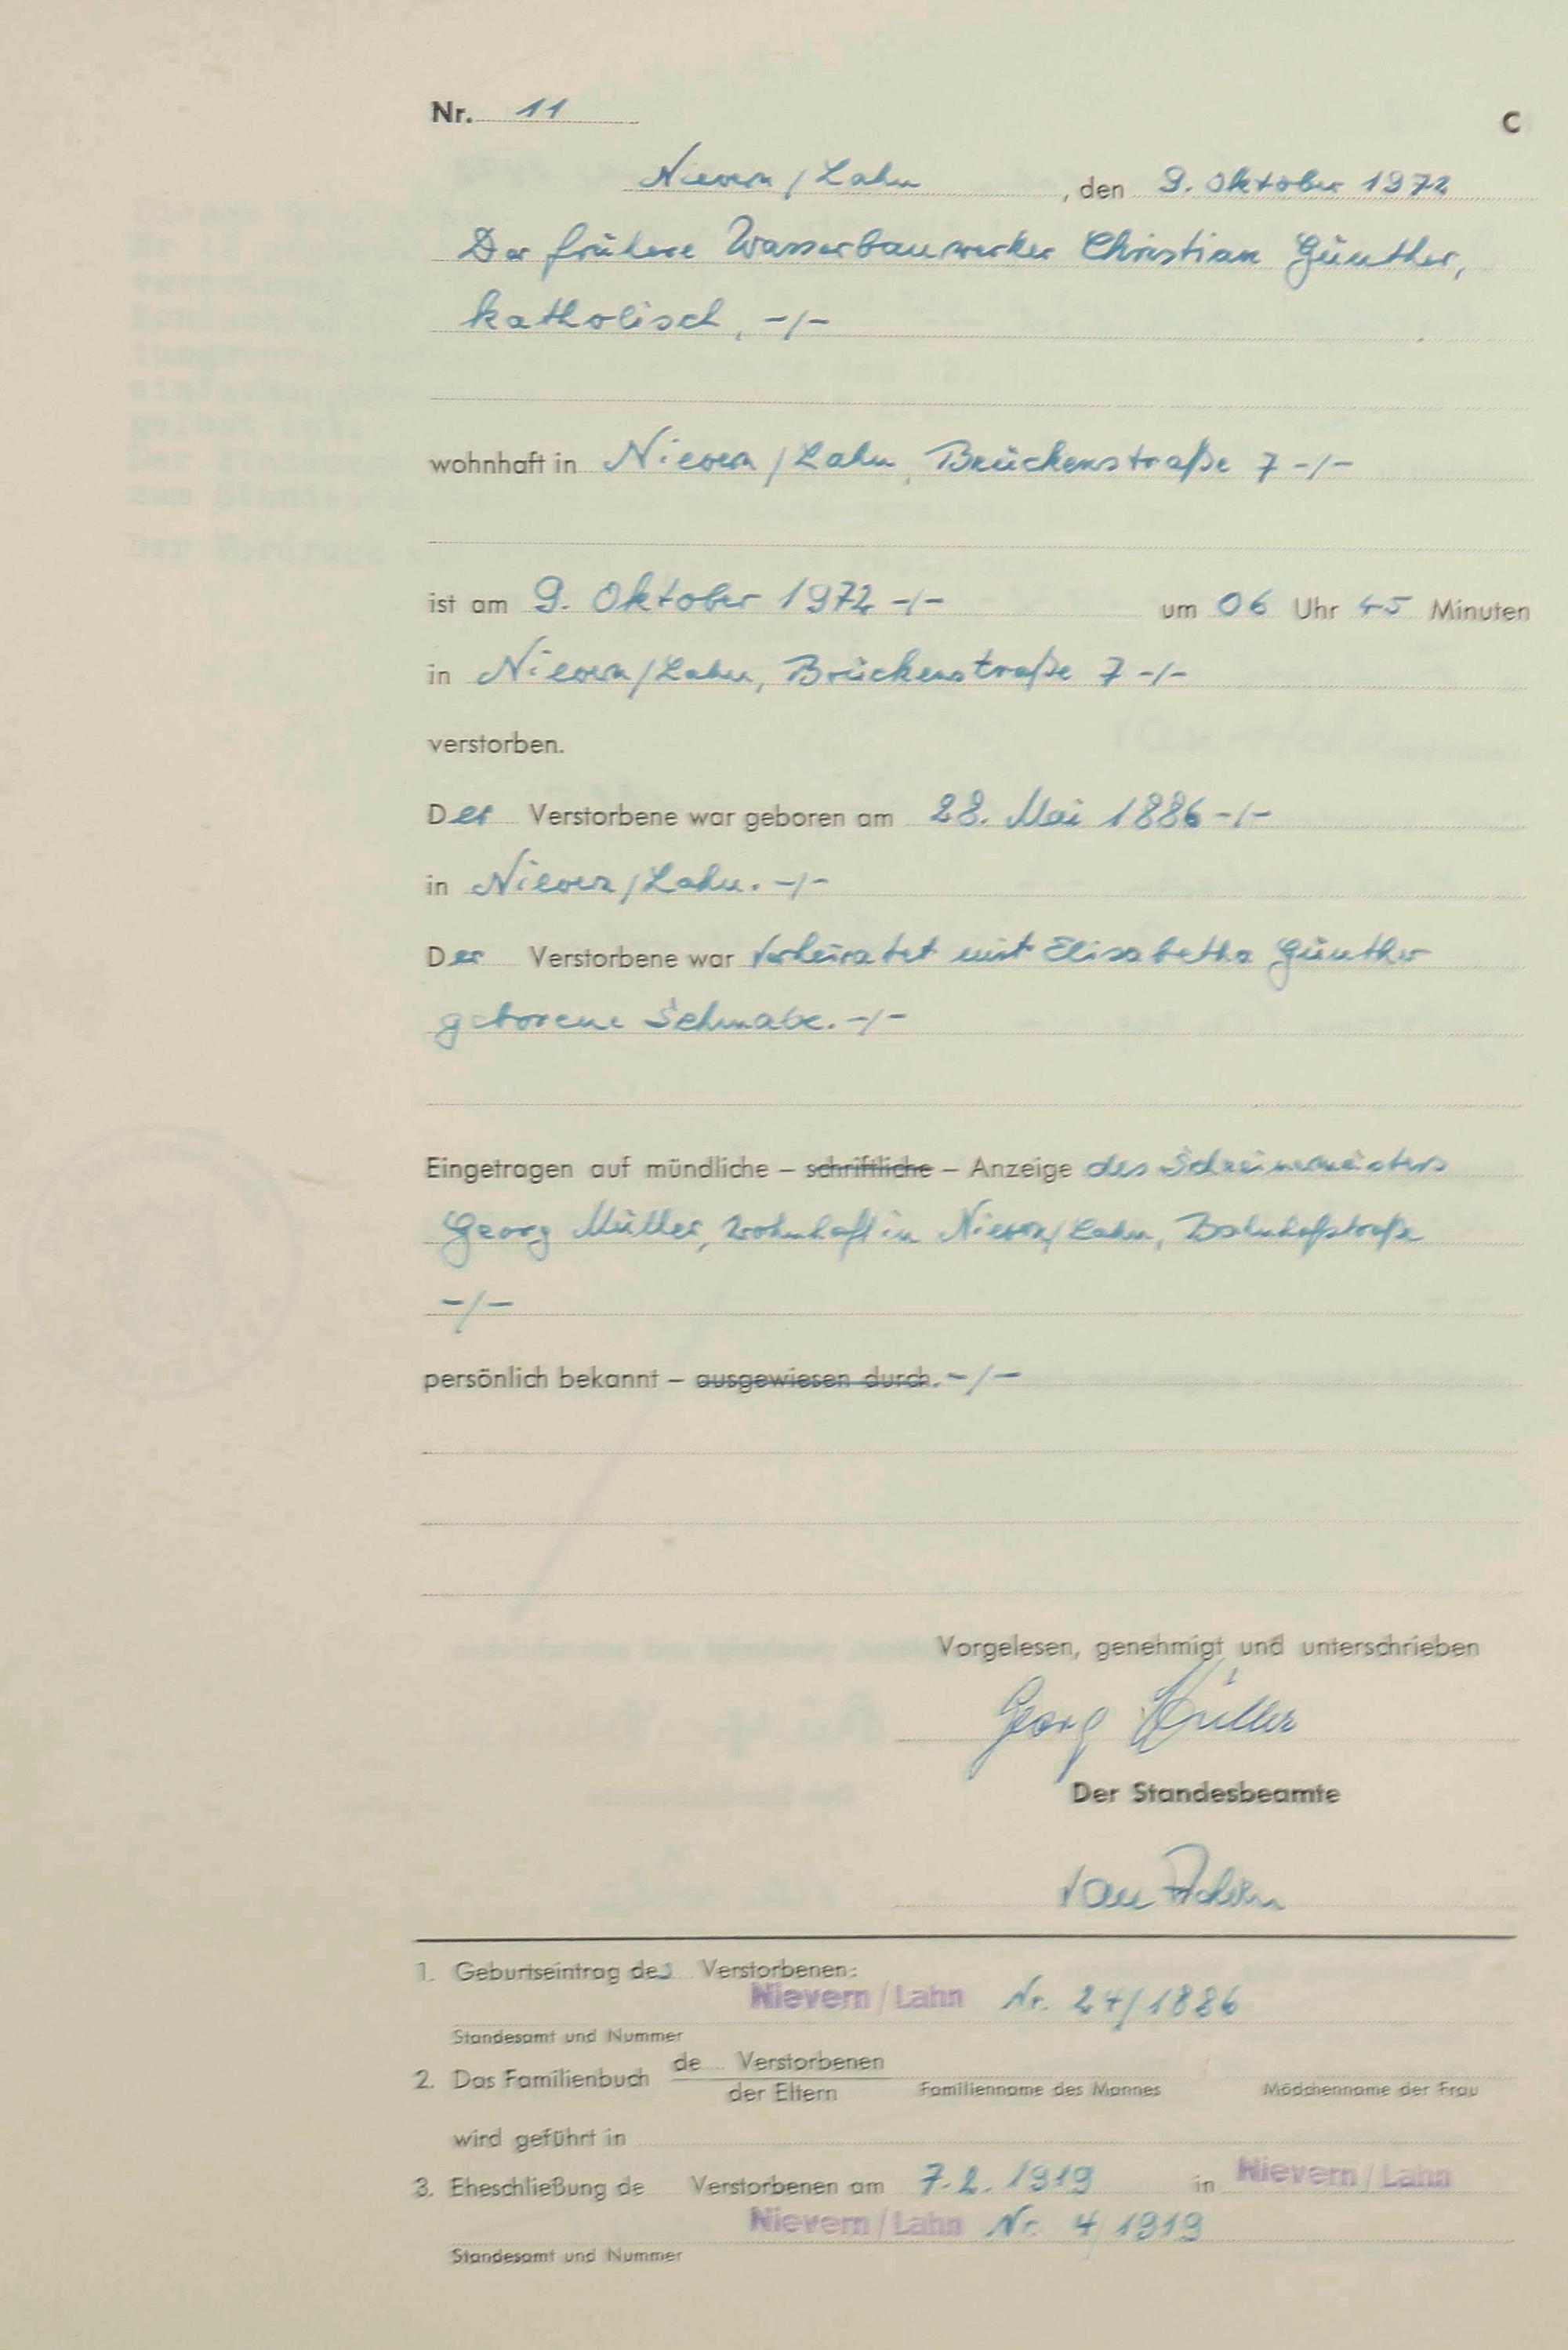 Nr. 11
C
Nievern / Lahn, den 9. Oktober 1972
Der frühere Wasserbauwerker Christian Günther,
katholisch, -/-
wohnhaft in Nievern / Lahn, Brückenstraße 7 -/-
ist am 9. Oktober 1972 -/- um 06 Uhr 45 Minuten
in Nievern/Lahn, Brückenstraße 7 -/-
verstorben.
Der Verstorbene war geboren am 28. Mai 1886 -/-
in Nievern/Lahn. -/-
Der Verstorbene war verheiratet mit Elisabetha Günther
geborene Schwabe. -/-
Eingetragen auf mündliche – schriftliche – Anzeige des Schreinermeisters
Georg Müller, wohnhaft in Nievern/Lahn, Bahnhofstraße
-/-
persönlich bekannt – ausgewiesen durch. -/-
Vorgelesen, genehmigt und unterschrieben
Georg Müller
Der Standesbeamte
1. Geburtseintrag des Verstorbenen:
Nievern / Lahn Nr. 24/1886
Standesamt und Nummer
2. Das Familienbuch de Verstorbenen
der Eltern Familienname des Mannes Mädchenname der Frau
wird geführt in
3. Eheschließung de Verstorbenen am 7.2.1919 in Nievern / Lahn
Nievern / Lahn Nr. 4/1919
Standesamt und Nummer